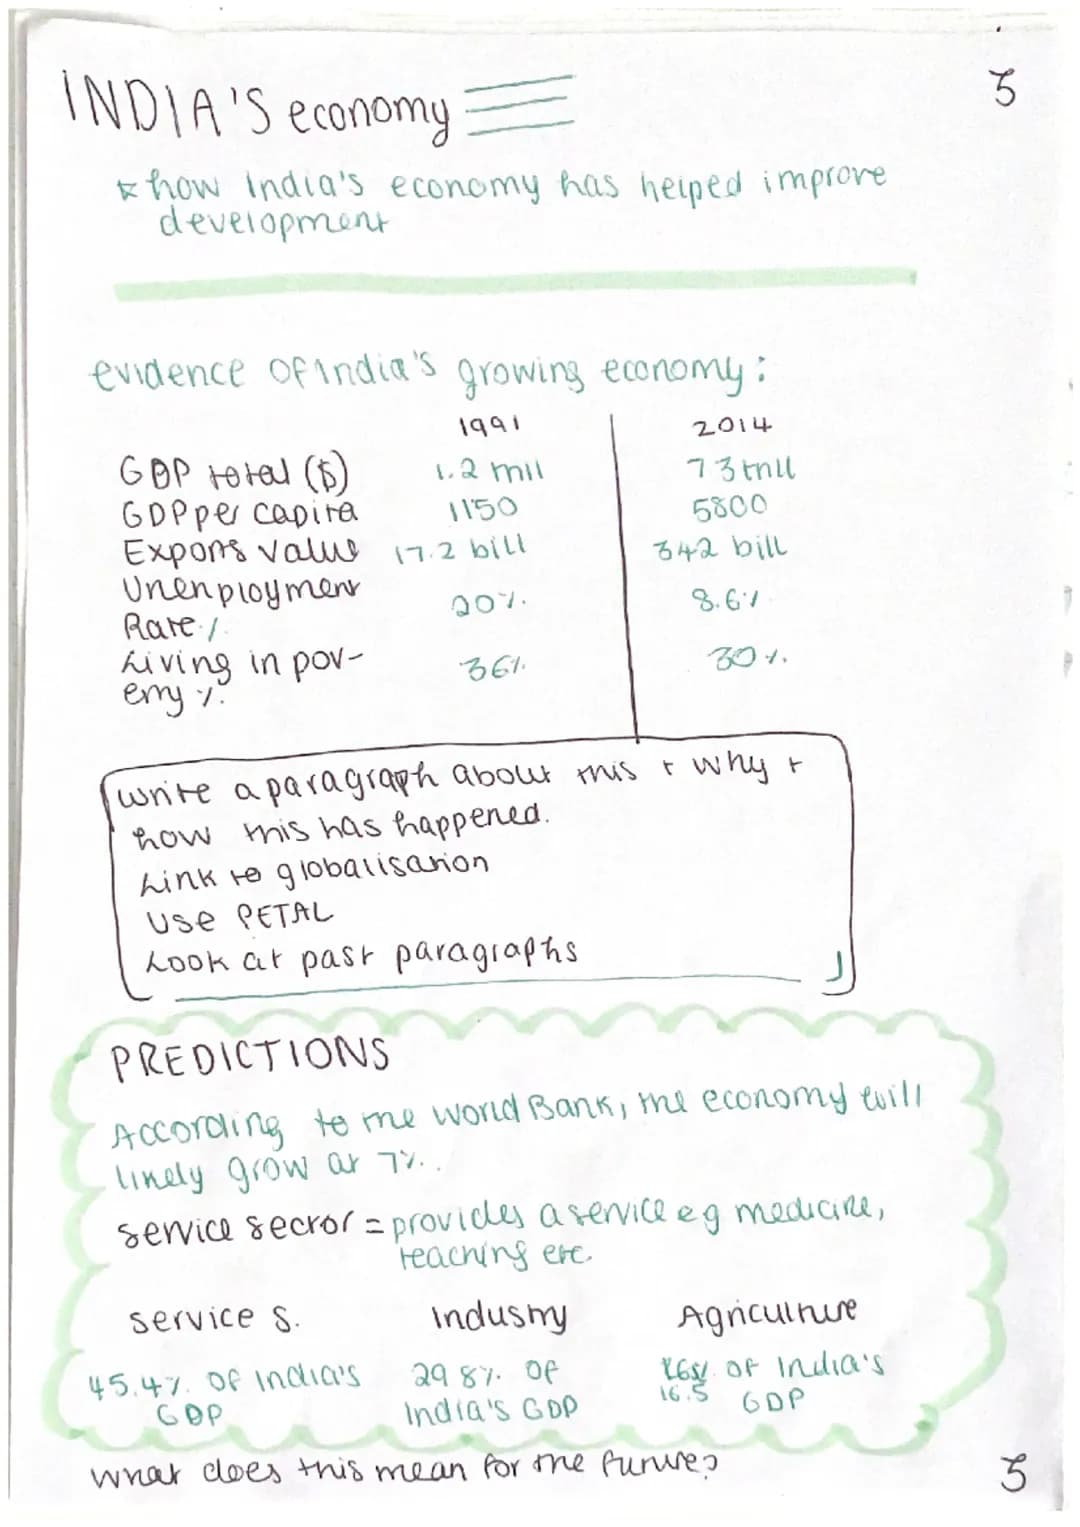 INDIA'S economy
3
* how India's economy has helped improve
development
evidence of India's growing economy:
1991 2014
GDP total ($) 1.2 mil 73 trill
GDP per capita 1150 5800
Exports value 17.2 bill 342 bill
Unenployment 20%. 8.6%
Rate %.
Living in pov- 36% 30%.
erty %.
Write a paragraph about this + why +
how this has happened.
Link to globalisation
Use PETAL
Look at past paragraphs
PREDICTIONS
According to the World Bank, the economy will
likely grow at 7%..
service sector = provides a service eg medicine,
teaching etc.
service s. Industry Agriculture
45.4% of India's 29.8% of of India's
GDP India's GDP 16.5 GDP
What does this mean for the future?
3